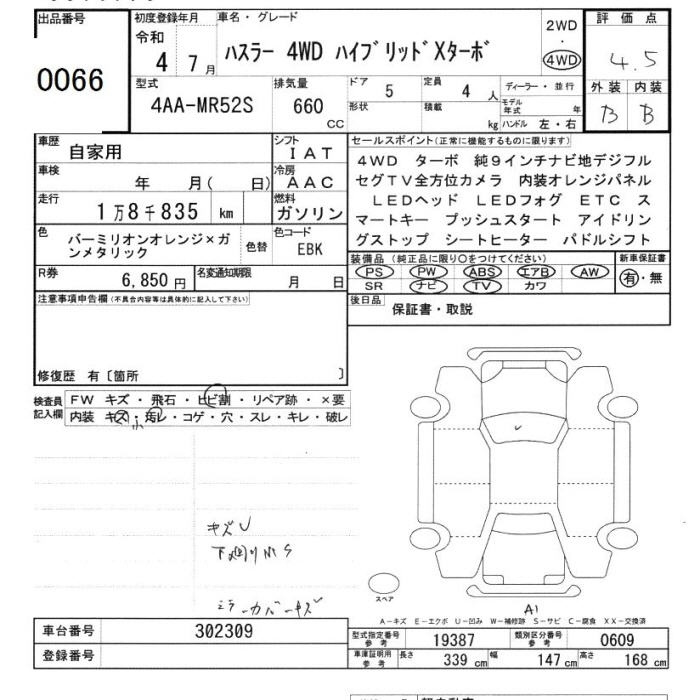 出品番号
0066
初度登録年月
令和
4 7月
車名・グレード
ハスラー 4WD ハイブリッドXターボ
2WD
・
4WD
評価点
4.5
外装 内装
B B
型式
4AA-MR52S
排気量
660
CC
ドア
5
定員
4 人
形状
積載
kg
ディーラー・並行
モデル年式 年
ハンドル 左・右
車歴
自家用
シフト
IAT
車検
年 月( 日)
冷房
AAC
走行
1万8千835 km
燃料
ガソリン
色
バーミリオンオレンジ×ガ
ンメタリック
色替
色コード
EBK
R券
6,850 円
名変通知期限
月 日
セールスポイント(正常に機能するものに限ります)
4WD ターボ 純9インチナビ地デジフル
セグTV全方位カメラ 内装オレンジパネル
LEDヘッド LEDフォグ ETC ス
マートキー プッシュスタート アイドリン
グストップ シートヒーター パドルシフト
装備品 (純正品に限り○をつけてください)
PS PW ABS エアB AW
SR ナビ TV カワ
新車保証書
有・無
後日品
保証書・取説
注意事項申告欄(不具合内容等は具体的に記入して下さい)
修復歴 有〔箇所 〕
検査員
記入欄
FW キズ・飛石・ヒビ割・リペア跡・×要
内装 キズ・汚レ・コゲ・穴・スレ・キレ・破レ
小
キズU
下廻りサS
ミラーカバーキズ
スペア
A1
A-キズ E-エクボ U-凹み W-補修跡 S-サビ C-腐食 XX-交換済
車台番号
302309
登録番号
型式指定番号
参考
19387
類別区分番号
参考
0609
車庫証明用
参考
長さ 339 cm 幅 147 cm 高さ 168 cm